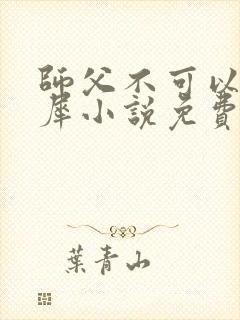 師父不可以
犀小說免費
葉青山